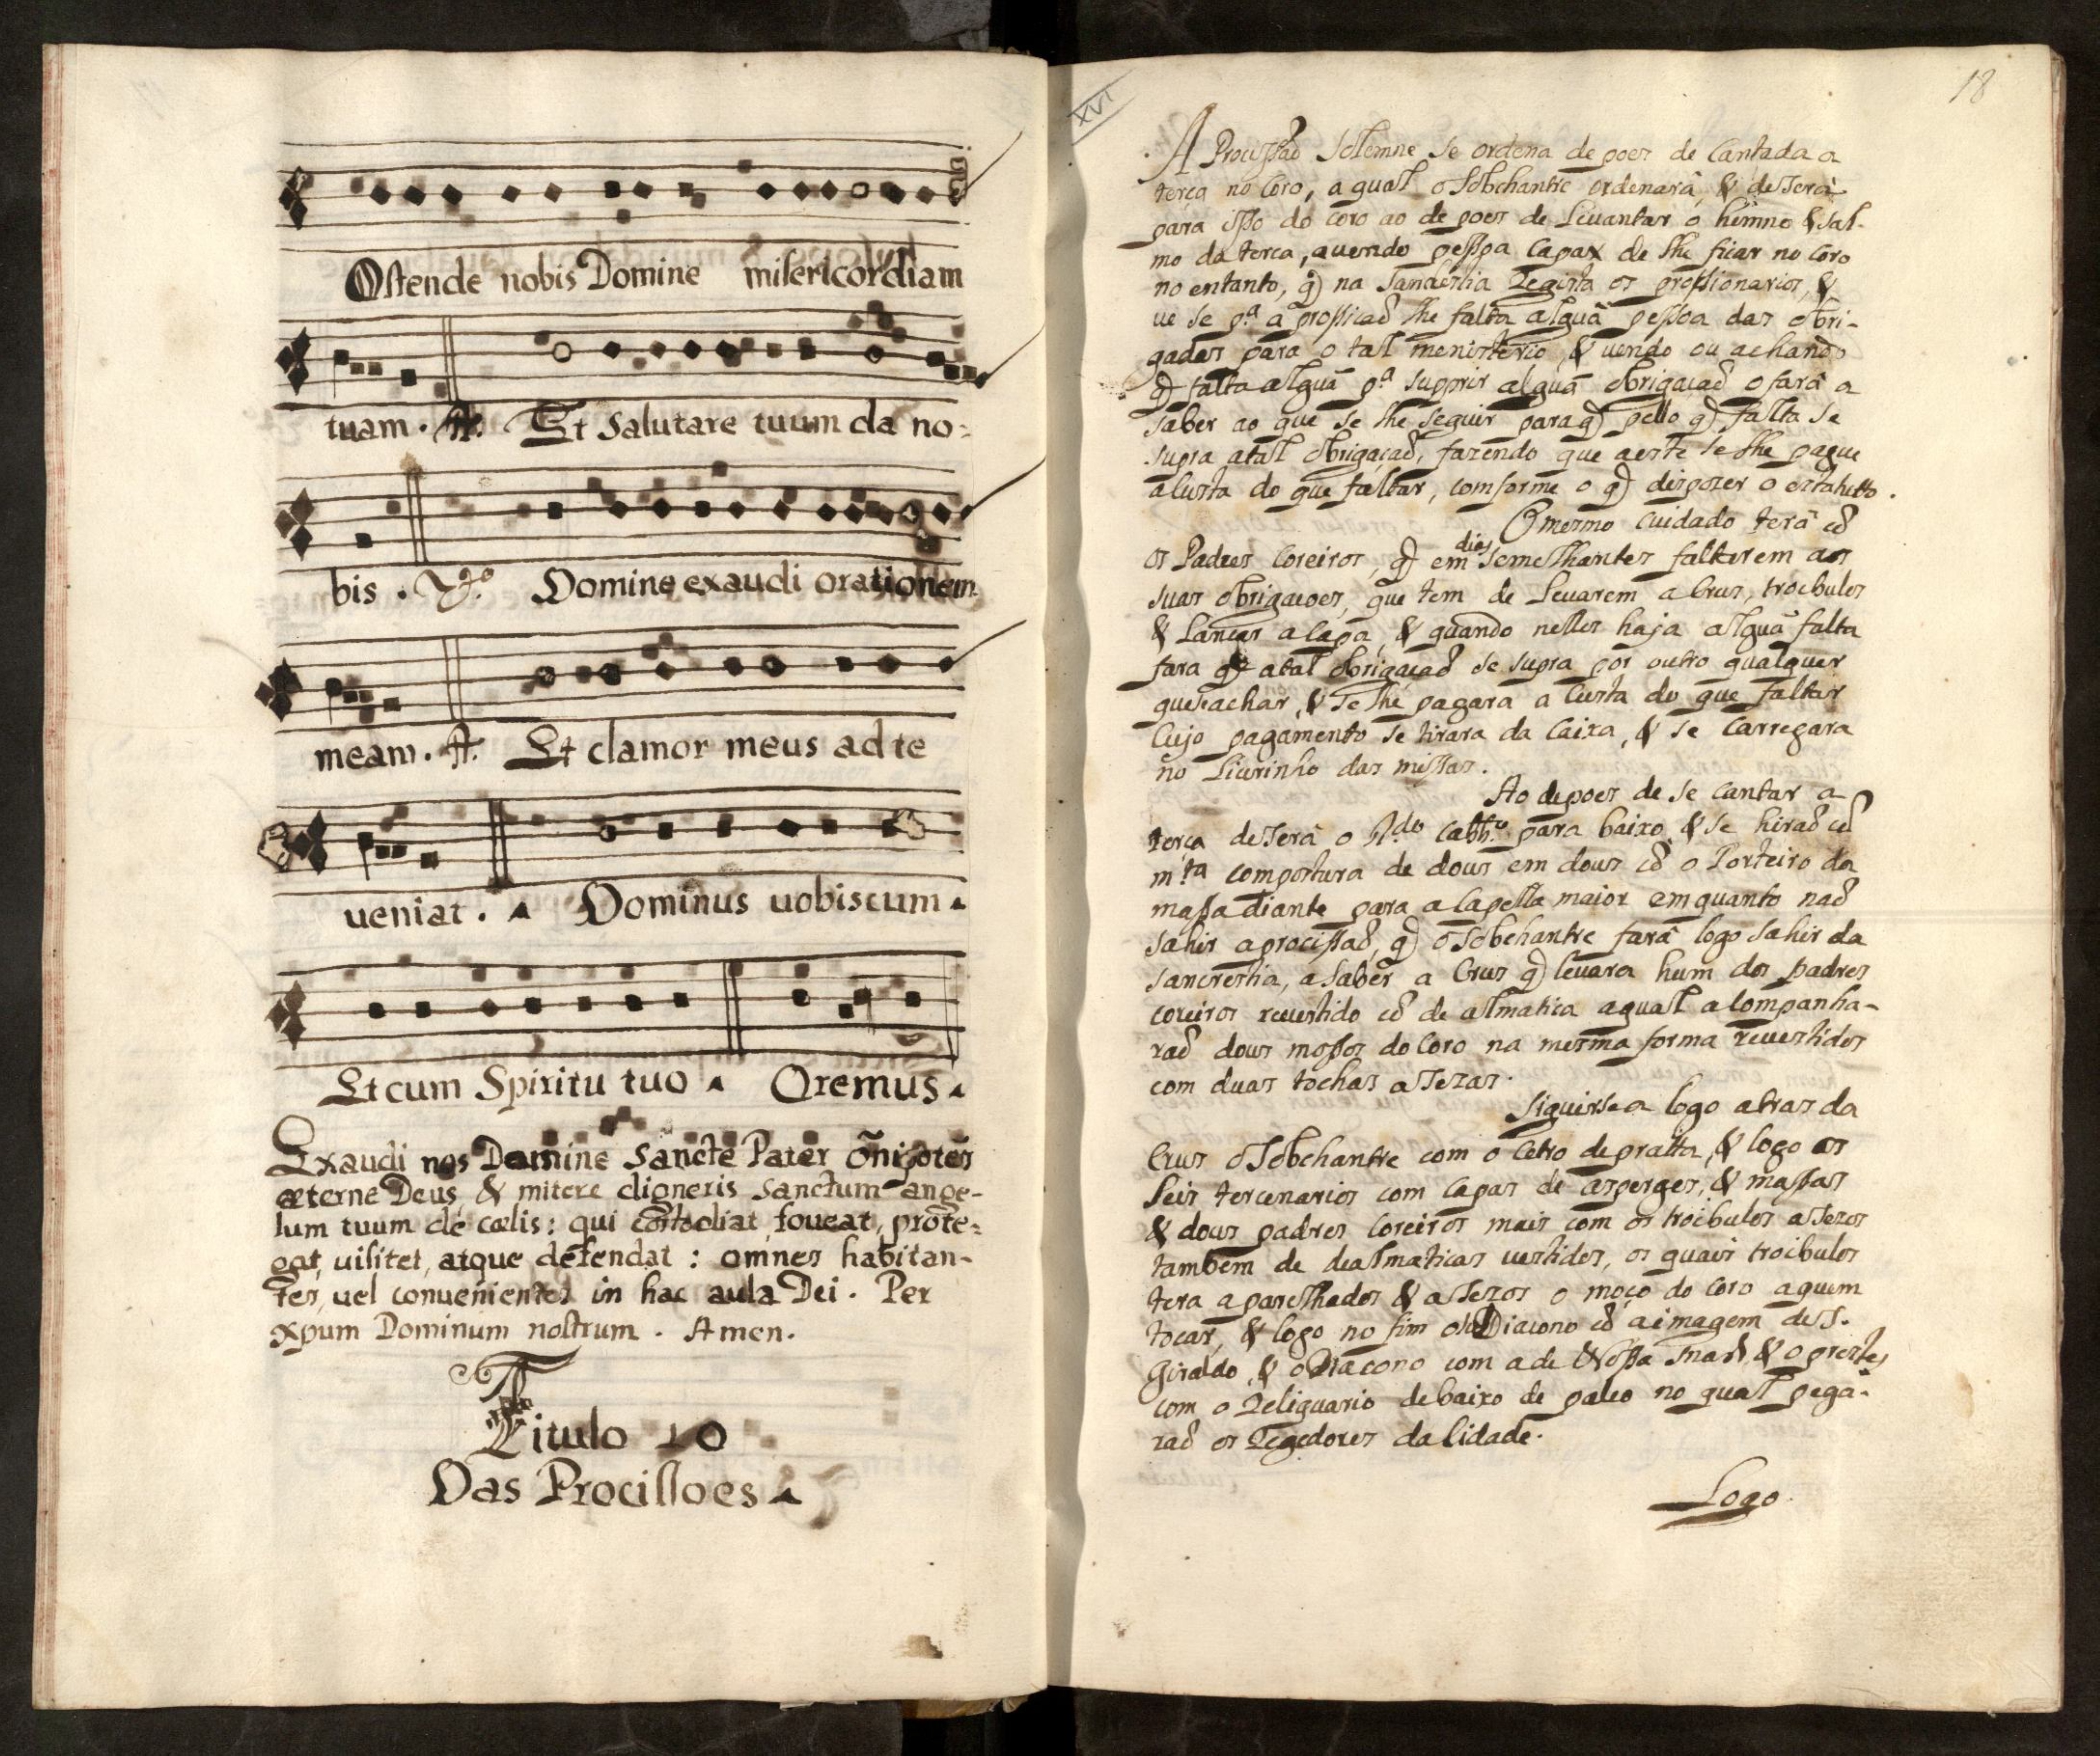 Ostende nobis Domine misericordiam
tuam. R. Et salutare tuum da no=
bis. V.o Domine exaudi orationem
meam. R. Et clamor meus ad te
ueniat. Dominus uobiscum
Et cum Spiritu tuo Oremus
Exaudi nos Domine Sancte Pater õnipotẽs
æterne Deus & mitere digneris Sanctum ange-
lum tuum de cælis: qui custodiat, foueat, prote=
gat, uisitet, atque defendat: omnes habitan-
tes, uel conuenientes in hac aula Dei. Per
xpum Dominum nostrum. Amen.
Titulo 10
Das Procissoes
XVI
18
A Procissaõ Solemne se ordena depoes de Cantada a
terça no Coro, a qual o Sobchantre ordenarâ, & deserâ
para isso do coro ao depoes de leuantar o himno & sal-
mo da terca, auendo pessoa capax de lhe ficar no Coro
no entanto, q) na Sanchristia Regista os prossionarios, &
ue se p.ª a prossicaõ lhe falta alguã pessoa das obri-
gadas para o tal menisterio, & uendo ou achando
q) falta alguã p.ª supprir alguã obrigacaõ o farâ a
saber ao que se lhe seguir para q) pello q) falta se
supra a tal obrigacaõ, fazendo que a este se lhe pague
a Custa do que faltar, comforme o q) dispozer o
O mesmo cuidado terâ cõ
os Padres Coreiros, q) em dias semelhantes faltarem as
suas obrigacoes, que tem de Leuarem a Crus, troibulos
& Lançar a Capa, & quando nelles haja alguã falta
fara q) a tal obrigacaõ se supra por outro qualquer
que se achar, & se lhe pagara a Custa do que faltar
Cujo pagamento se tirara da Caixa, & se Carregara
no Liurinho das missas.
Ao depoes de se cantar a
terça deserâ o R.do Cabb.o para baixo, & se hiraõ cõ
m.ta compostura de dous em dous cõ o Porteiro da
massa diante para a Capella maior emquanto naõ
sahir a procissaõ, q) o Sobchantre farâ logo sahir da
sancrestia, a saber a Crus q) leuara hum dos padres
coreiros reuestido cõ de almatica a qual acompanha-
raõ dous mossos do Coro na mesma forma reuestidos
com duas tochas asezas.
Siguirsea logo atras da
Crus o Sobchantre com o Cetro de pratta, & logo os
seis tercenarios com capas de asperges, & massas
& dous padres Coreiros mais com os troibulos asezos
tambem de dealmaticas uestidos, os quais troibulos
tera aparelhados & asezos o moço do Coro a quem
tocar, & logo no fim o Diacono cõ a imagem de S.
Giraldo, & o Diacono com a de Nossa & o prestes
com o Reliquario debaixo de paleo no qual pega-
raõ os Regedores da Cidade.
Logo